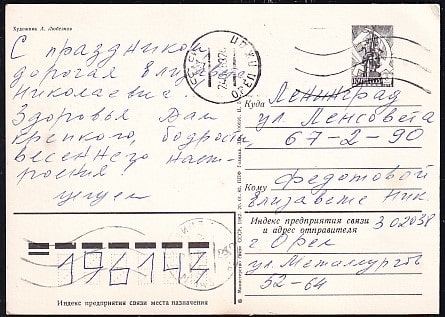 Художник А. Любезнов
С праздником
дорогая Елизавета
Николаевна.
Здоровья Вам
крепкого, бодрости,
весеннего наст-
роения!
Куда Ленинград
ул Ленсовета
67-2-90
Кому Федотовой
Елизавете Ник.
Индекс предприятия связи
и адрес отправителя 302038
г Орел
ул. Металлургов
52-64
196143
Индекс предприятия связи места назначения